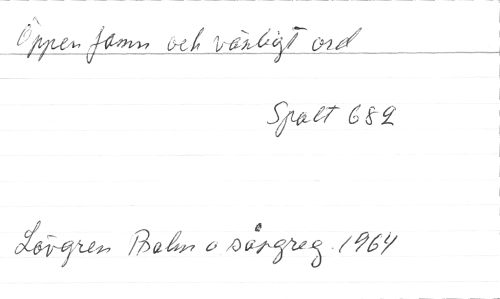 Öppen famn och vänligt ord
Spalt 682
Lövgren Psalm o sånglex. 1964